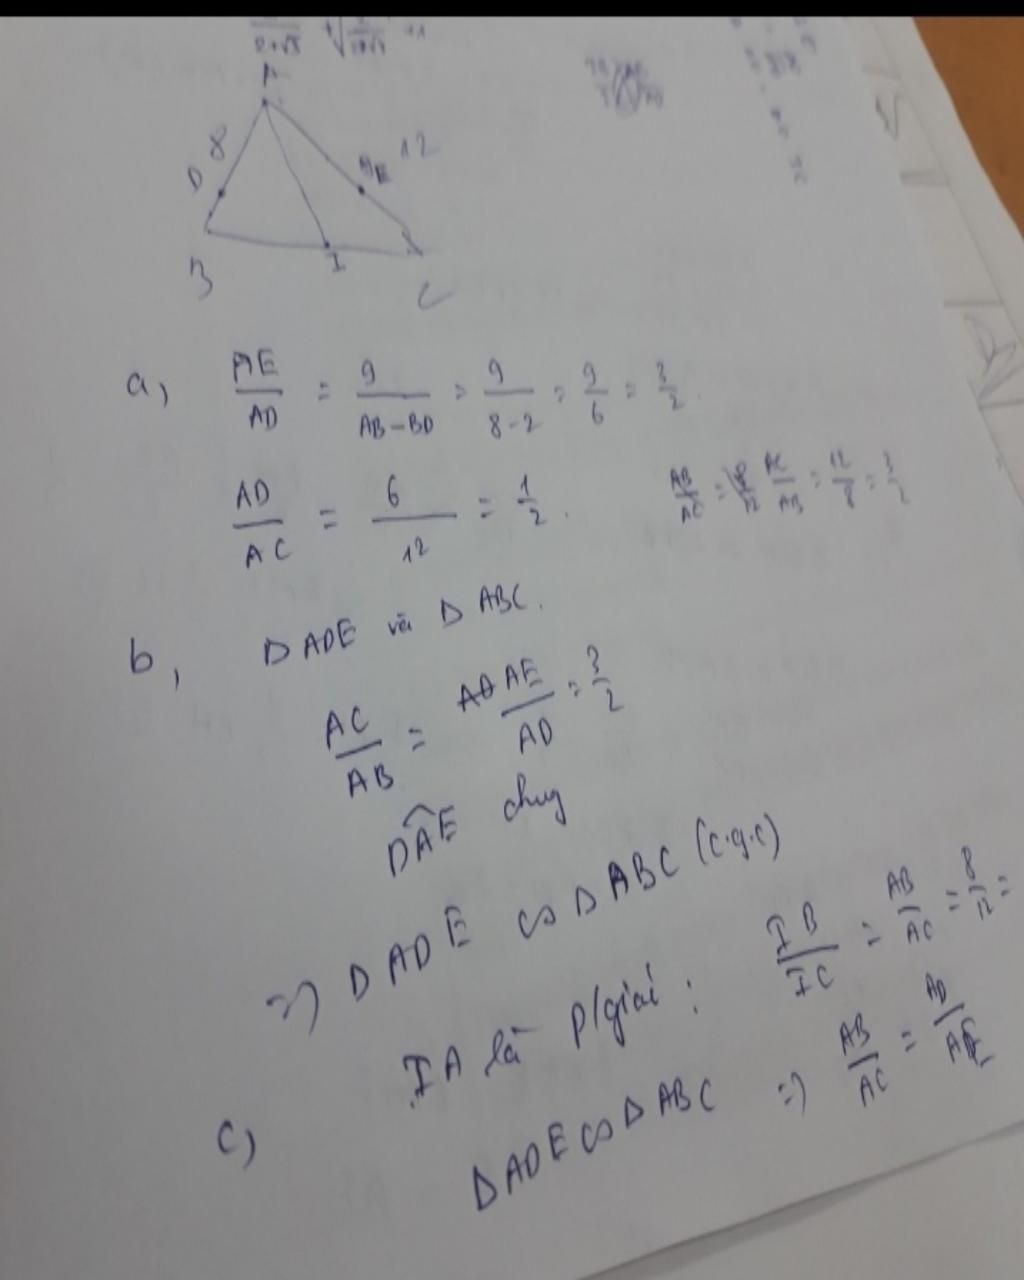 A
8
D
E 12
I
B
C
a, AE/AD = 9/(AB-BD) = 9/(8-2) = 9/6 = 3/2.
AD/AC = 6/12 = 1/2.
AB/AC = 8/12 AC/AB = 12/8 = 3/2
b, Δ ADE và Δ ABC.
AC/AB = AE/AD = 3/2
DÂE chug
=> Δ ADE ∽ Δ ABC (c.g.c)
IA là p/giái : IB/IC = AB/AC = 8/12 =
c) Δ ADE ∽ Δ ABC => AB/AC = AD/AE